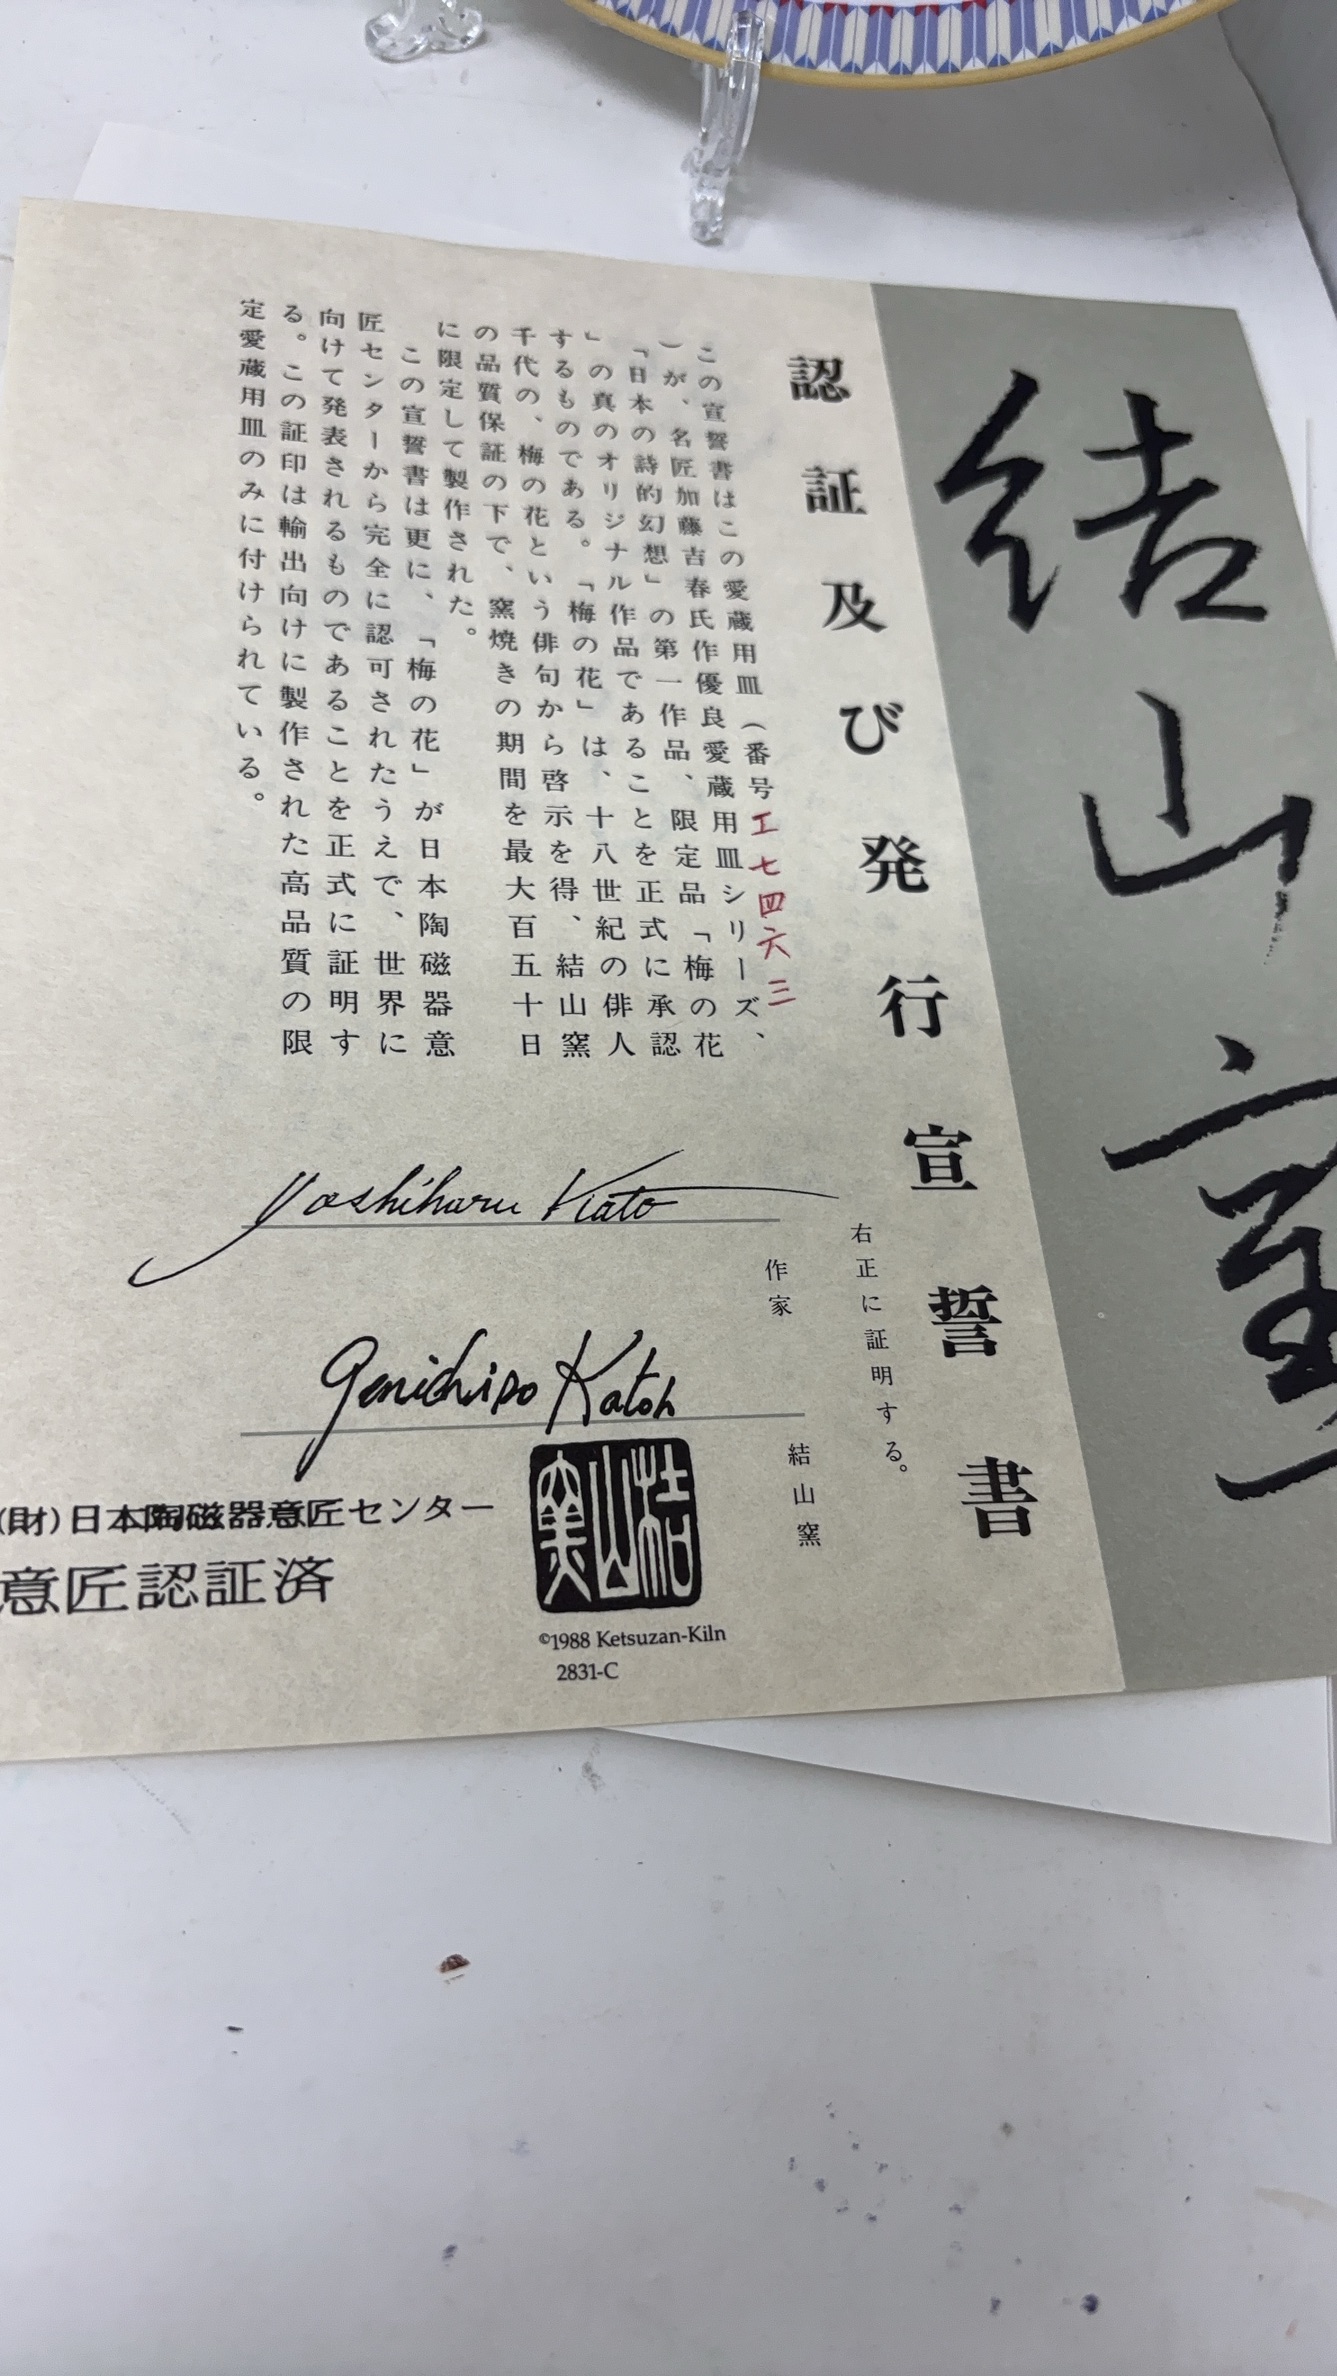 結山窯
認証及び発行宣誓書
この宣誓書はこの愛蔵用皿(番号エ七四六三
)が、名匠加藤吉春氏作優良愛蔵用皿シリーズ、
「日本の詩的幻想」の第一作品、限定品「梅の花
」の真のオリジナル作品であることを正式に承認
するものである。「梅の花」は、十八世紀の俳人
千代の、梅の花という俳句から啓示を得、結山窯
の品質保証の下で、窯焼きの期間を最大百五十日
に限定して製作された。
この宣誓書は更に、「梅の花」が日本陶磁器意
匠センターから完全に認可されたうえで、世界に
向けて発表されるものであることを正式に証明す
る。この証印は輸出向けに製作された高品質の限
定愛蔵用皿のみに付けられている。
右正に証明する。
作家
Yoshiharu Kato
結山窯
Genichiro Katoh
結山窯
(財)日本陶磁器意匠センター
意匠認証済
©1988 Ketsuzan-Kiln
2831-C